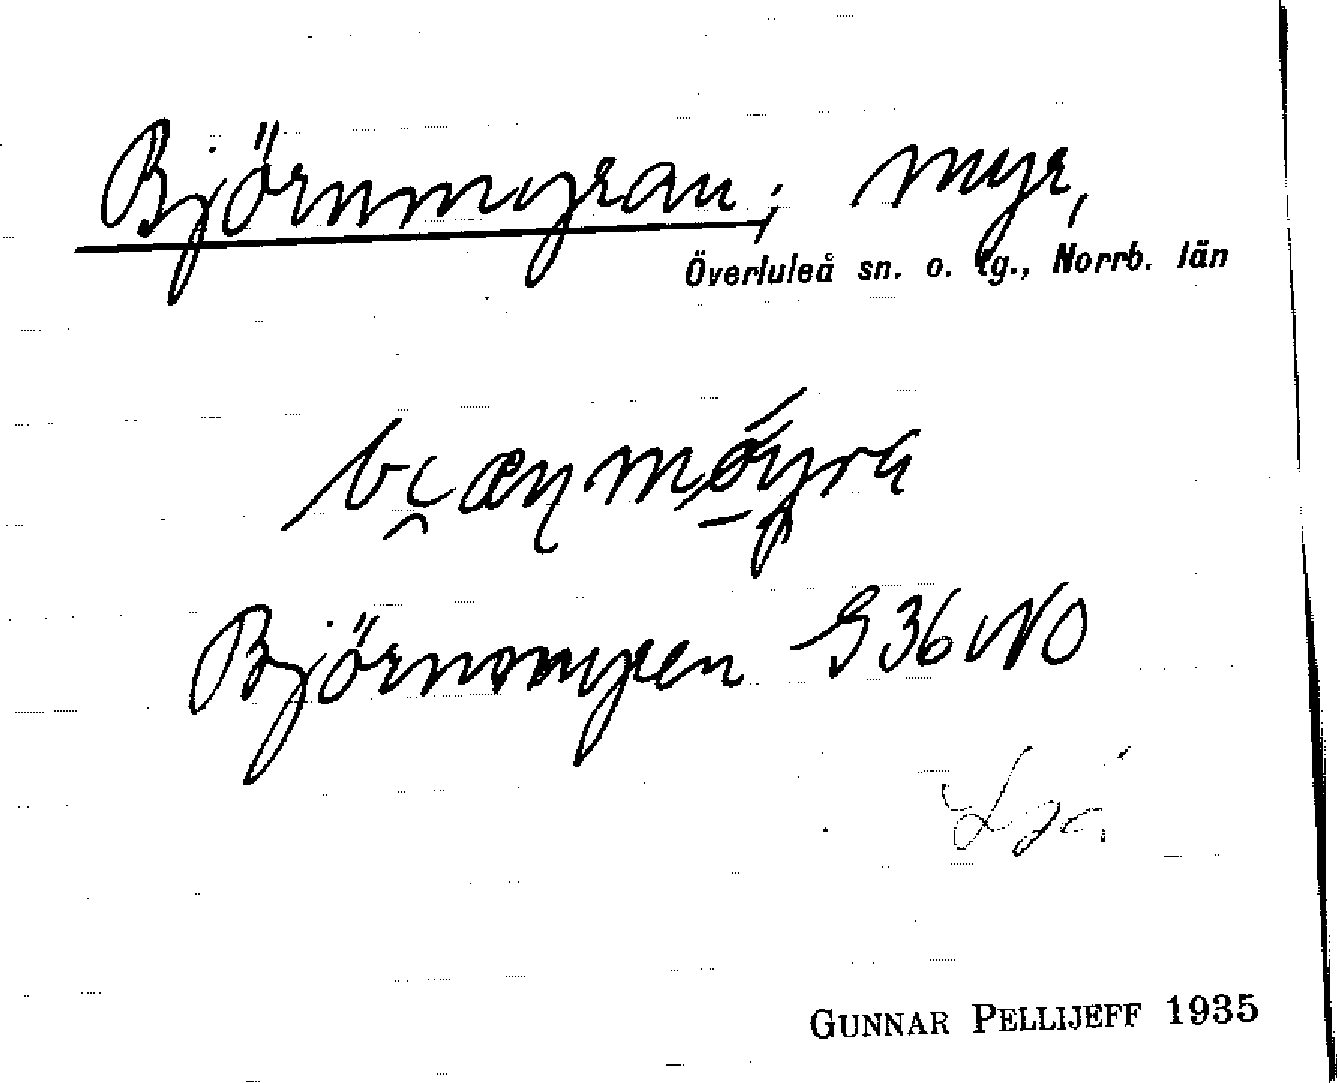 Björnmyran; myr,
Överluleå sn. o. tg., Norrb. län
Björnomyren G36NO
GUNNAR PELLIJEFF 1935